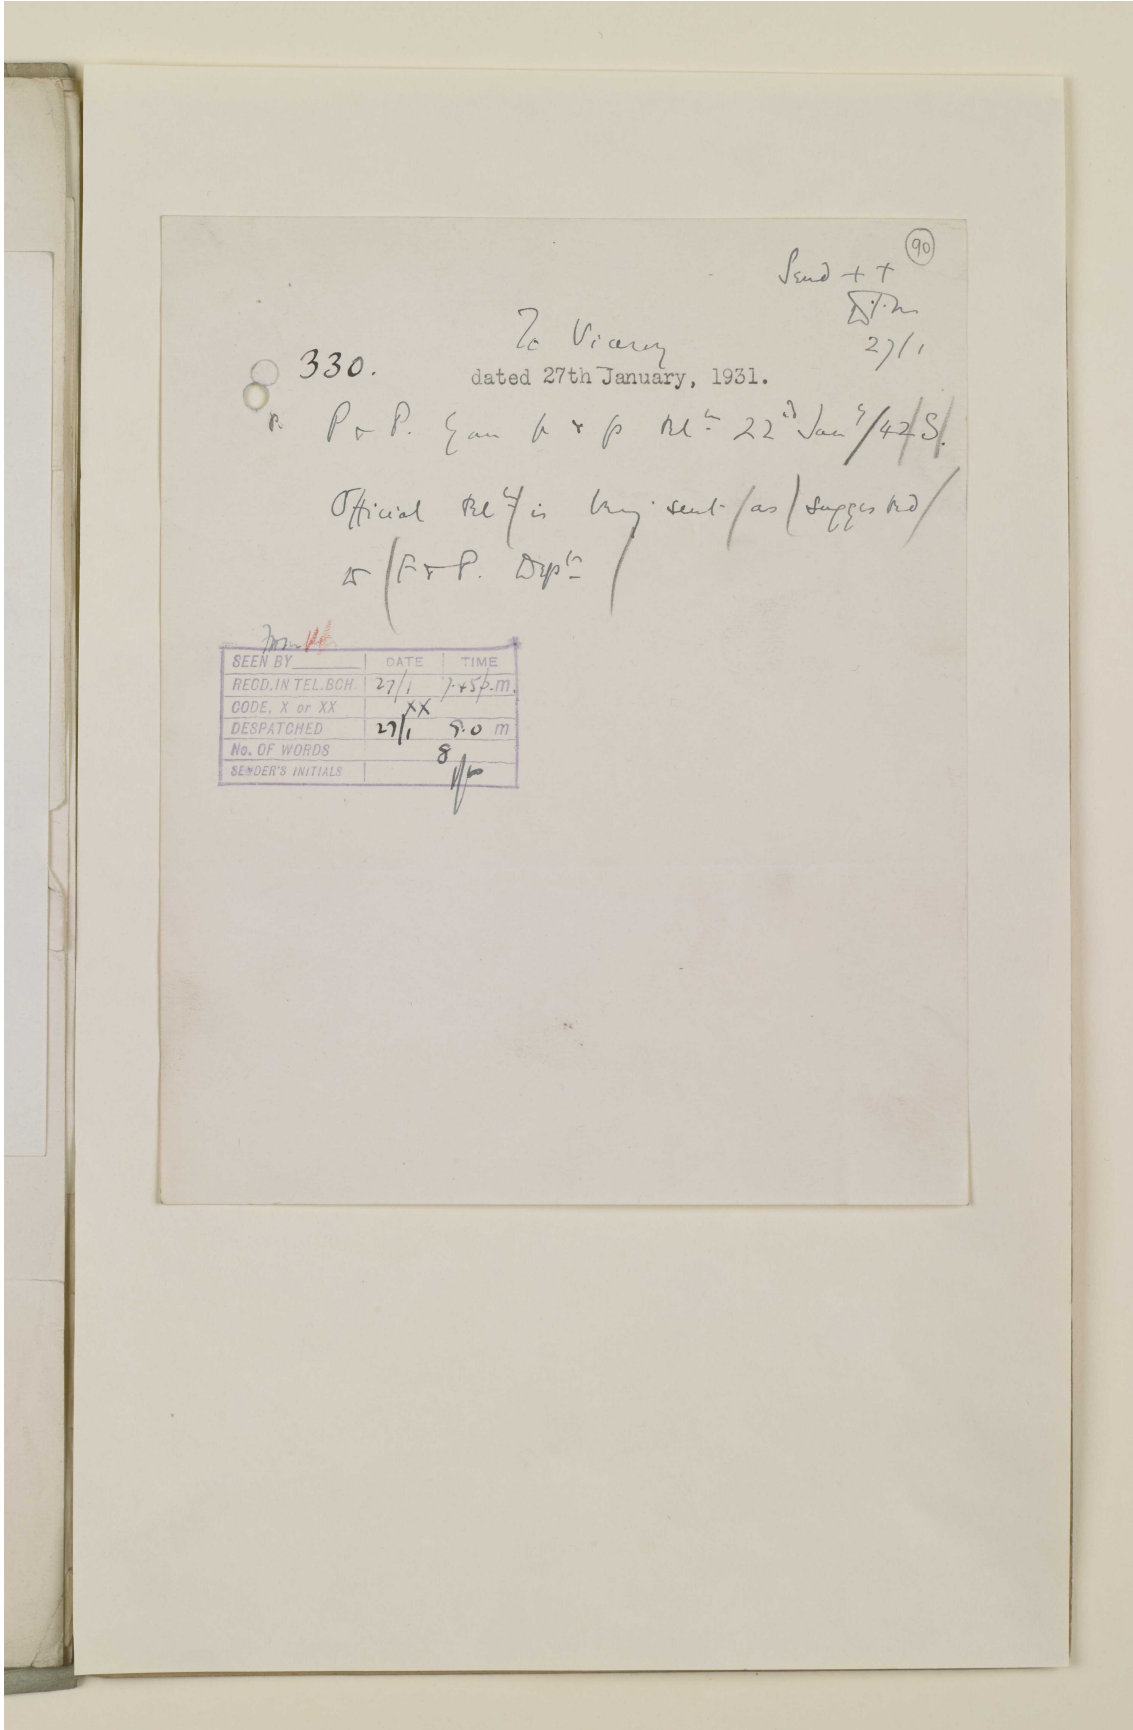 90
Send + +
27/1
To Viceroy
330.
dated 27th January, 1931.
P. P & P. Your p & p tel^m 22^d Jan^y /42/S/.
Official tel^m / is being sent / as / suggested /
to / F & P. Dep^t /
From
SEEN BY DATE TIME
RECD. IN TEL. BCH. 27/1 7.45 p.m.
CODE, X or XX XX
DESPATCHED 27/1 9.0 m
No. OF WORDS 8
SENDER'S INITIALS